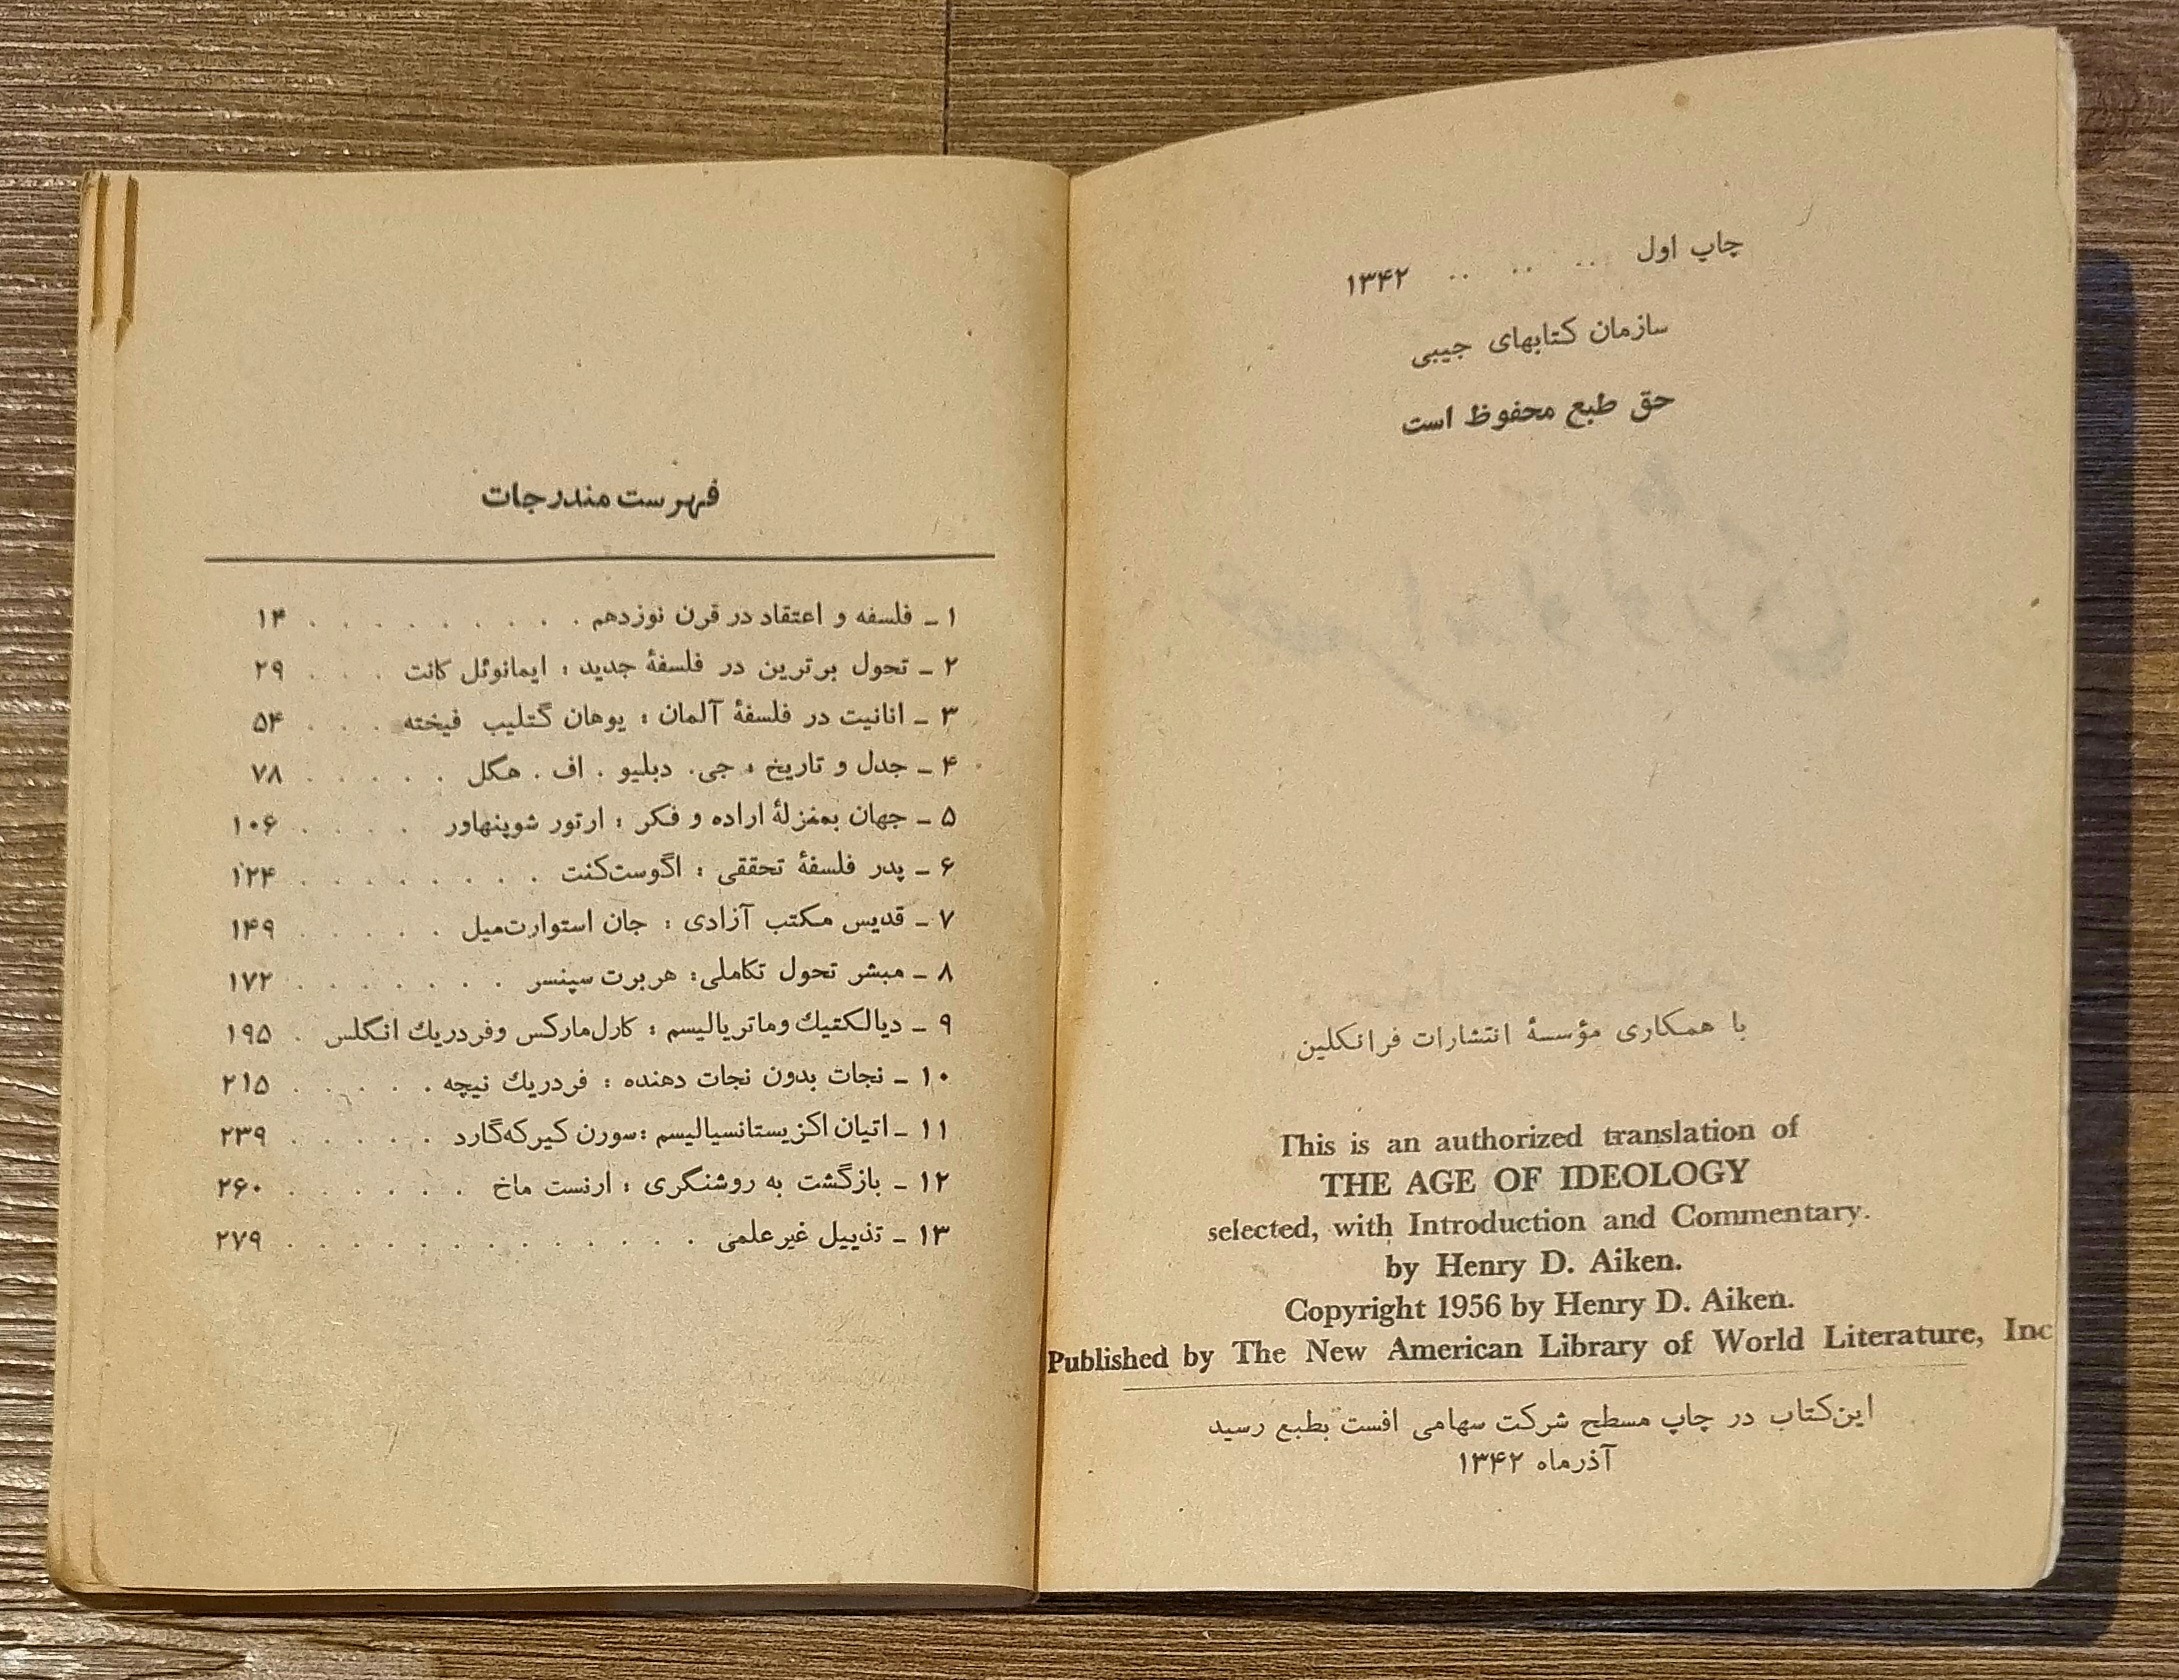 چاپ اول .. .. .. ۱۳۴۲
سازمان کتابهای جیبی
حق طبع محفوظ است
با همکاری مؤسسهٔ انتشارات فرانکلین
This is an authorized translation of
THE AGE OF IDEOLOGY
selected, with Introduction and Commentary.
by Henry D. Aiken.
Copyright 1956 by Henry D. Aiken.
Published by The New American Library of World Literature, Inc
این‌کتاب در چاپ مسطح شرکت سهامی افست بطبع رسید
آذرماه ۱۳۴۲
فهرست مندرجات
۱ ـ فلسفه و اعتقاد در قرن نوزدهم . . . . . . . . . ۱۴
۲ ـ تحول برترین در فلسفهٔ جدید : ایمانوئل کانت . . . ۲۹
۳ ـ انانیت در فلسفهٔ آلمان : یوهان گتلیب فیخته . . . ۵۴
۴ ـ جدل و تاریخ : جی. دبلیو . اف . هگل . . . . . ۷۸
۵ ـ جهان بمنزلهٔ اراده و فکر : ارتور شوپنهاور . . . . ۱۰۶
۶ ـ پدر فلسفهٔ تحققی : اگوست‌کنت . . . . . . . . ۱۲۴
۷ ـ قدیس مکتب آزادی : جان استوارت‌میل . . . . . ۱۴۹
۸ ـ مبشر تحول تکاملی: هربرت سپنسر . . . . . . . ۱۷۲
۹ ـ دیالکتیك وماتریالیسم : کارل‌مارکس وفردریك انگلس . ۱۹۵
۱۰ ـ نجات بدون نجات دهنده : فردریك نیچه . . . . . ۲۱۵
۱۱ ـ اتیان اکزیستانسیالیسم :سورن کیرکه‌گارد . . . . . ۲۳۹
۱۲ ـ بازگشت به روشنگری : ارنست ماخ . . . . . . ۲۶۰
۱۳ ـ تذییل غیرعلمی . . . . . . . . . . . . . ۲۷۹